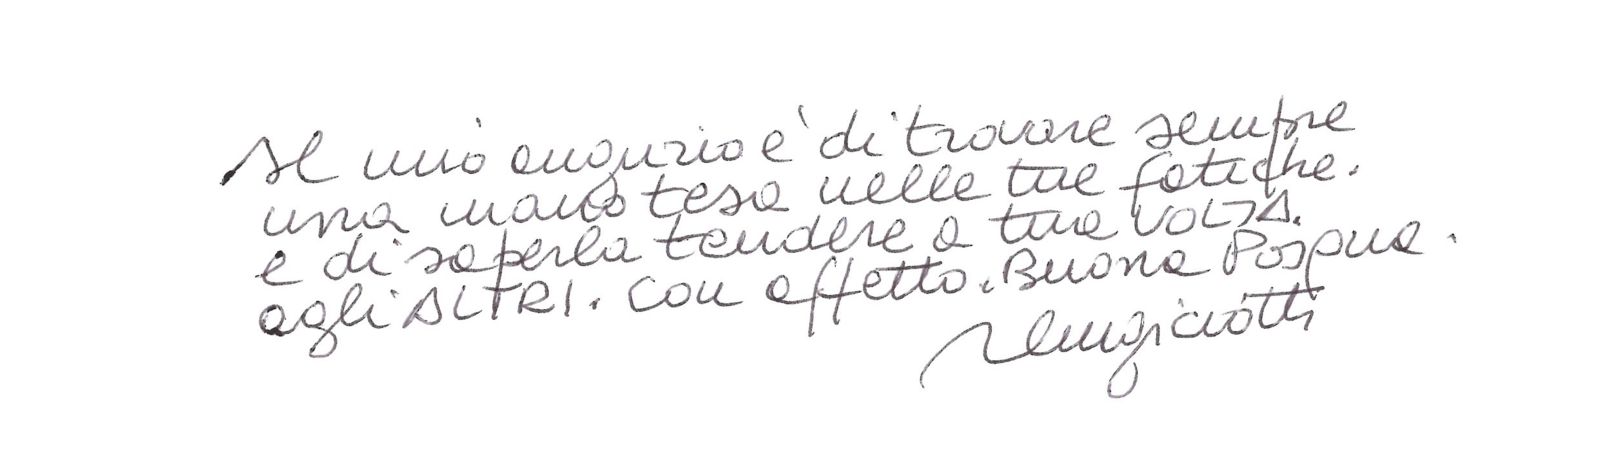 Il mio augurio è di trovare sempre
una mano tesa nelle tue fatiche.
e di saperla tendere a tua VOLTA.
agli ALTRI. con affetto. Buona Pasqua.